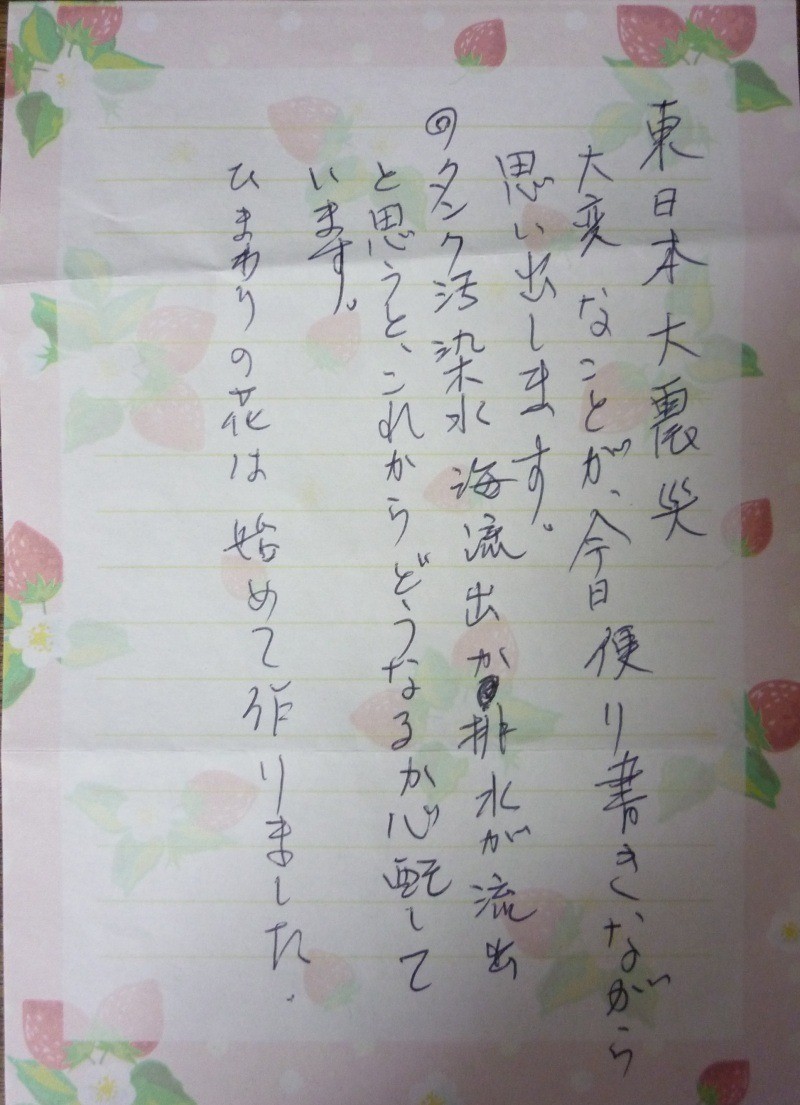 東日本大震災
大変なことが、今日便り書きながら
思い出します。
◎タンク汚染水海流出か排水が流出
と思うと、これからどうなるか心配して
います。
ひまわりの花は始めて作りました.